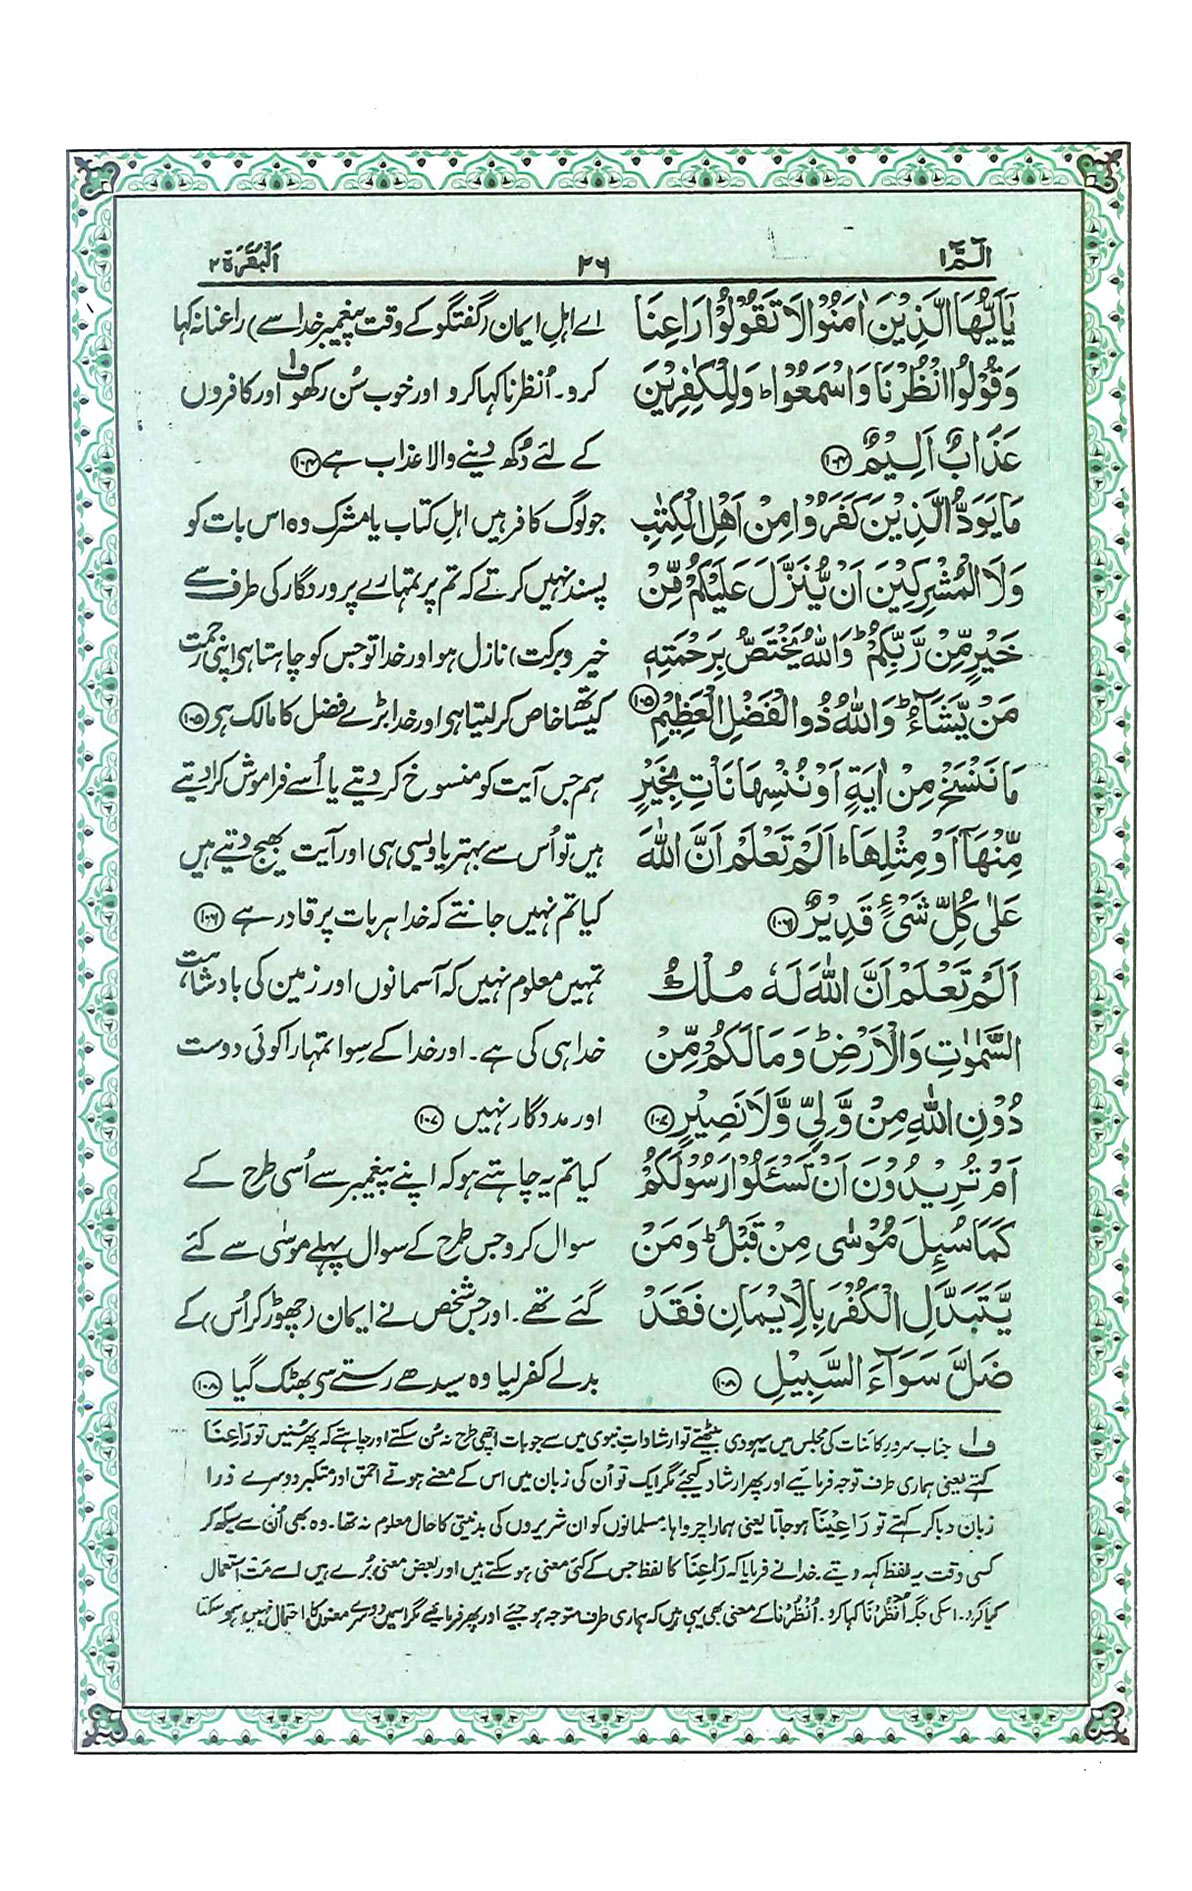 الٓمّٓ ۱
۲۶
اَلْبَقَرَة ۲
یٰۤاَیُّهَا الَّذِیْنَ اٰمَنُوْا لَا تَقُوْلُوْا رَاعِنَا
وَ قُوْلُوا انْظُرْنَا وَ اسْمَعُوْا ؕ وَ لِلْكٰفِرِیْنَ
عَذَابٌ اَلِیْمٌ ۝۱۰۴
مَا یَوَدُّ الَّذِیْنَ كَفَرُوْا مِنْ اَهْلِ الْكِتٰبِ
وَ لَا الْمُشْرِكِیْنَ اَنْ یُّنَزَّلَ عَلَیْكُمْ مِّنْ
خَیْرٍ مِّنْ رَّبِّكُمْ ؕ وَ اللّٰهُ یَخْتَصُّ بِرَحْمَتِهٖ
مَنْ یَّشَآءُ ؕ وَ اللّٰهُ ذُو الْفَضْلِ الْعَظِیْمِ ۝۱۰۵
مَا نَنْسَخْ مِنْ اٰیَةٍ اَوْ نُنْسِهَا نَاْتِ بِخَیْرٍ
مِّنْهَاۤ اَوْ مِثْلِهَا ؕ اَلَمْ تَعْلَمْ اَنَّ اللّٰهَ
عَلٰی كُلِّ شَیْءٍ قَدِیْرٌ ۝۱۰۶
اَلَمْ تَعْلَمْ اَنَّ اللّٰهَ لَهٗ مُلْكُ
السَّمٰوٰتِ وَ الْاَرْضِ ؕ وَ مَا لَكُمْ مِّنْ
دُوْنِ اللّٰهِ مِنْ وَّلِیٍّ وَّ لَا نَصِیْرٍ ۝۱۰۷
اَمْ تُرِیْدُوْنَ اَنْ تَسْـَٔلُوْا رَسُوْلَكُمْ
كَمَا سُىِٕلَ مُوْسٰی مِنْ قَبْلُ ؕ وَ مَنْ
یَّتَبَدَّلِ الْكُفْرَ بِالْاِیْمَانِ فَقَدْ
ضَلَّ سَوَآءَ السَّبِیْلِ ۝۱۰۸
اے اہلِ ایمان (گفتگو کے وقت پیغمبرِ خدا سے) راعنا نہ کہا
کرو۔ اُنظرنا کہا کرو اور خوب سُن رکھو ف۱ اور کافروں
کے لئے دُکھ دینے والا عذاب ہے ۝۱۰۴
جو لوگ کافر ہیں اہلِ کتاب یا مشرک وہ اس بات کو
پسند نہیں کرتے کہ تم پر تمہارے پروردگار کی طرف سے
خیر (و برکت) نازل ہو اور خدا تو جس کو چاہتا ہی اپنی رحمت
کیساتھ خاص کر لیتا ہی اور خدا بڑے فضل کا مالک ہی ۝۱۰۵
ہم جس آیت کو منسوخ کر دیتے یا اُسے فراموش کرا دیتے
ہیں تو اُس سے بہتر یا ویسی ہی اور آیت بھیج دیتے ہیں
کیا تم نہیں جانتے کہ خدا ہر بات پر قادر ہے ۝۱۰۶
تمہیں معلوم نہیں کہ آسمانوں اور زمین کی بادشاہت
خدا ہی کی ہے۔ اور خدا کے سوا تمہارا کوئی دوست
اور مددگار نہیں ۝۱۰۷
کیا تم یہ چاہتے ہو کہ اپنے پیغمبر سے اُسی طرح کے
سوال کرو جس طرح کے سوال پہلے موسٰی سے کئے
گئے تھے۔ اور جس شخص نے ایمان (چھوڑ کر اُس) کے
بدلے کفر لیا وہ سیدھے رستے سے بھٹک گیا ۝۱۰۸
ف۱ جناب سرورِ کائنات کی مجلس میں یہودی بیٹھتے تو ارشاداتِ نبوی میں سے جو بات اچھی طرح نہ سُن سکتے اور چاہتے کہ پھر سُنیں تو رَاعِنَا
کہتے یعنی ہماری طرف توجہ فرمائیے اور پھر ارشاد کیجئے مگر ایک تو اُن کی زبان میں اس کے معنے ہوتے احمق اور متکبر دوسرے ذرا
زبان دبا کر کہتے تو رَاعِیْنَا ہو جاتا یعنی ہمارا چرواہا۔ مسلمانوں کو ان شریروں کی بدنیتی کا حال معلوم نہ تھا۔ وہ بھی اُن سے سیکھ کر
کسی وقت یہ لفظ کہہ دیتے۔ خدا نے فرمایا کہ رَاعِنَا کا لفظ جس کے کئی معنی ہو سکتے ہیں اور بعض معنی بُرے ہیں اسے مت استعمال
کیا کرو۔ اسکی جگہ اُنْظُرْنَا کہا کرو۔ اُنْظُرْنَا کے معنی بھی یہی ہیں کہ ہماری طرف متوجہ ہوجیئے اور پھر فرمائیے مگر اسمیں دوسرے معنوں کا احتمال نہیں ہو سکتا